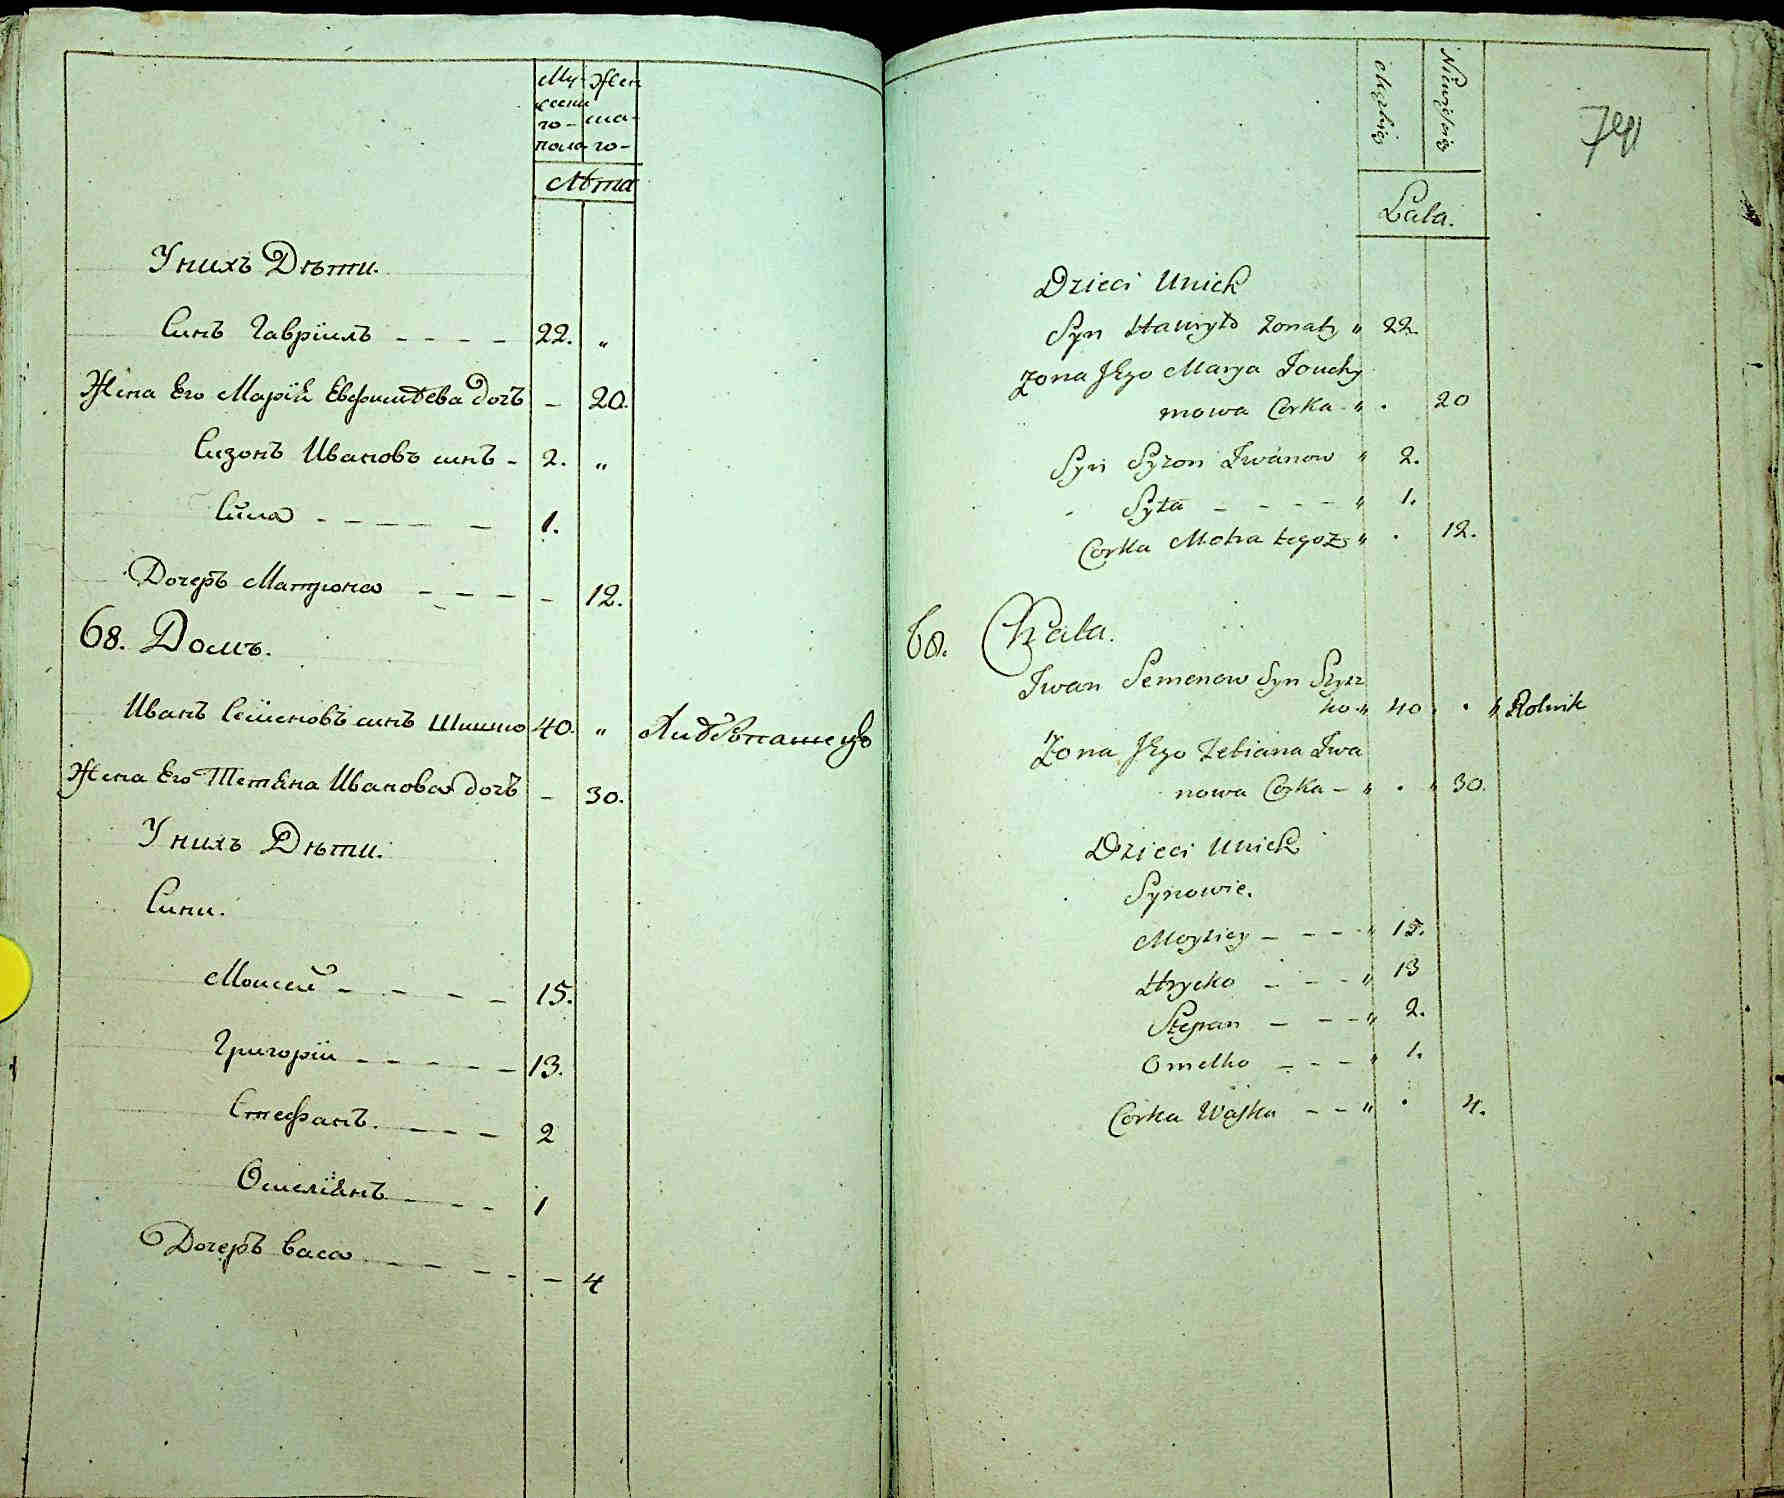 Му-
жеска
го-
пола
Жен
ска-
го-
Лѣта
У нихъ Дѣти.
Синъ Гавріилъ - - - - 22. "
Жена Его Марія Евфимѣева дочъ - 20.
Сизонъ Ивановъ синъ - 2. "
Сила - - - - - 1.
Дочеръ Матрона - - - - - 12.
68. Домъ.
Иванъ Семеновъ синъ Шишко 40. "
Жена Его Тетяна Иванова дочъ - 30.
У нихъ Дѣти.
Сини.
Моисей - - - - - 15.
Григорій - - - - - 13.
Стефанъ. - - - - 2
Омеліянъ - - - - 1
Дочеръ Васа - - - - - 4
Męzkiey
Niewiesciey
Lata.
Dzieci Unich
Syn Hawryło Zonaty " 22.
Zona Jego Marya Jouchy
mowa Corka - " . 20
Syn Syzon Iwanow " 2.
Syła - - - - - " 1.
Corka Motra tegoz " . 12.
68. Chata.
Iwan Semenow Syn Szysz
ko. " 40 . . " Rolnik
Zona Jego Tetiana Iwa
nowa Corka - " . " 30.
Dzieci Unich
Synowie.
Moyziey - - - " 15.
Hrycko - - - " 13
Stepan - - - " 2.
Omelko - - - " 1.
Corka Waska - - " . 4.